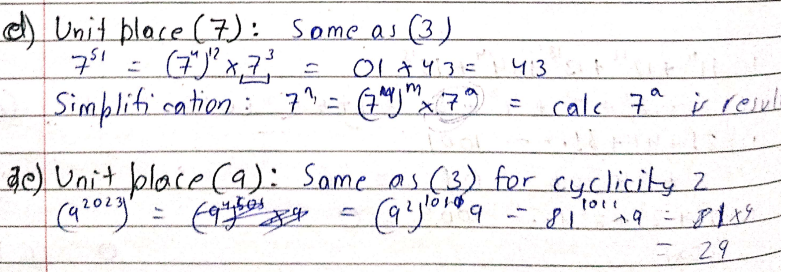 d) Unit place (7): Same as (3)
7^51 = (7^4)^12 x 7^3 = 01 x 43 = 43
Simplification: 7^n = (7^4)^m x 7^a = calc 7^a is resul
e) Unit place (9): Same as (3) for cyclicity 2
(9^2023) = = (9^2)^1010 9 = 81^1011 x 9 = 81x9
= 29